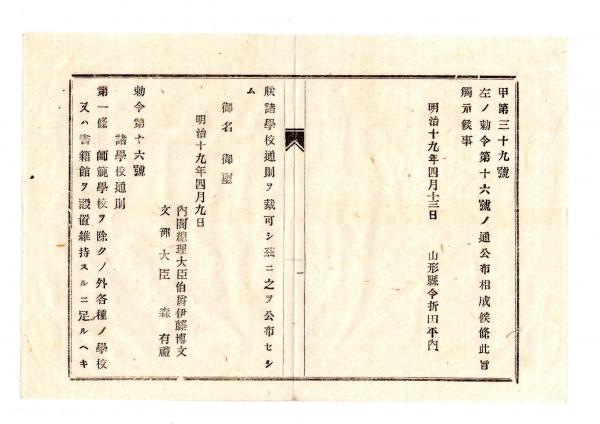 甲第三十九號
左ノ勅令第十六號ノ通公布相成候條此旨
觸示候事
明治十九年四月十三日
山形縣令折田平內
朕諸學校通則ヲ裁可シ茲ニ之ヲ公布セシ
ム
御名 御璽
明治十九年四月九日
內閣總理大臣伯爵伊藤博文
文部大臣 森有禮
勅令第十六號
諸學校通則
第一條 師範學校ヲ除クノ外各種ノ學校
又ハ書籍館ヲ設置維持スルニ足ルヘキ